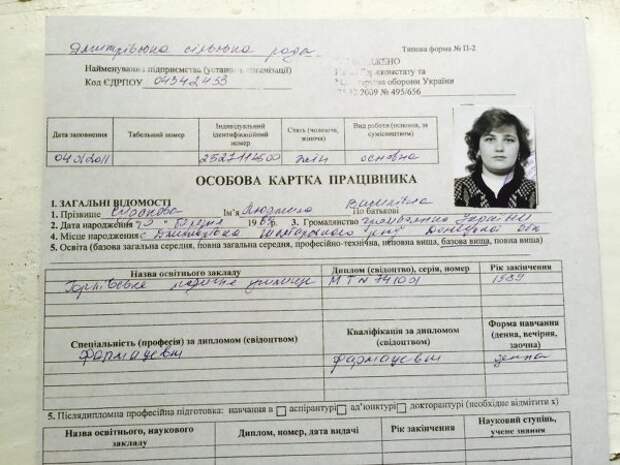 Дмитрівська сільська рада
Типова форма № П-2
Найменування підприємства (установи, організації)
Код ЄДРПОУ 04342433
оборони України
2009 № 495/656
Дата заповнення
Табельний номер
Індивідуальний ідентифікаційний номер
Стать (чоловіча, жіноча)
Вид роботи (основна, за сумісництвом)
основна
ОСОБОВА КАРТКА ПРАЦІВНИКА
I. ЗАГАЛЬНІ ВІДОМОСТІ
1. Прізвище Ім'я Людмила По батькові
2. Дата народження 3. Громадянство громадянка України
4. Місце народження с. Дмитрівка Шахтарського р-ну Донецької обл
5. Освіта (базова загальна середня, повна загальна середня, професійно-технічна, неповна вища, базова вища, повна вища)
Назва освітнього закладу
Диплом (свідоцтво), серія, номер
Рік закінчення
медичне училище
1989
Спеціальність (професія) за дипломом (свідоцтвом)
Кваліфікація за дипломом (свідоцтвом)
Форма навчання (денна, вечірня, заочна)
Фармацевт
фармацевт
денна
5. Післядипломна професійна підготовка: навчання в аспірантурі ад'юнктурі докторантурі (необхідне відмітити x)
Назва освітнього, наукового закладу
Диплом, номер, дата видачі
Рік закінчення
Науковий ступінь, учене звання